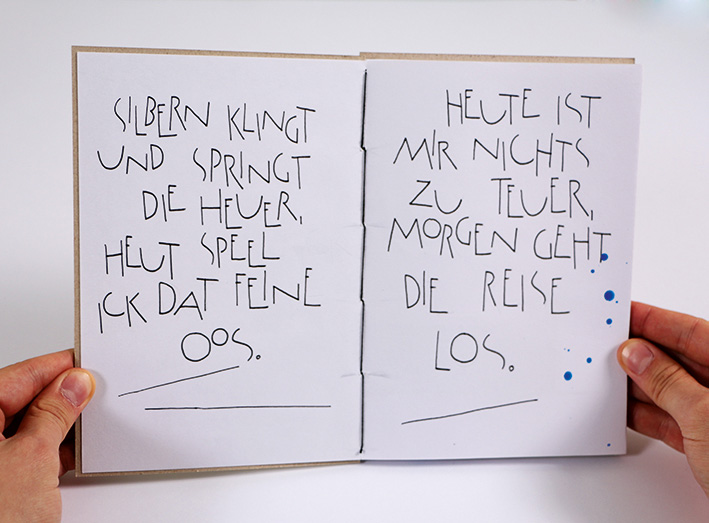 SILBERN KLINGT
UND SPRINGT
DIE HEUER,
HEUT SPEEL
ICK DAT FEINE
OOS.
HEUTE IST
MIR NICHTS
ZU TEUER,
MORGEN GEHT
DIE REISE
LOS.